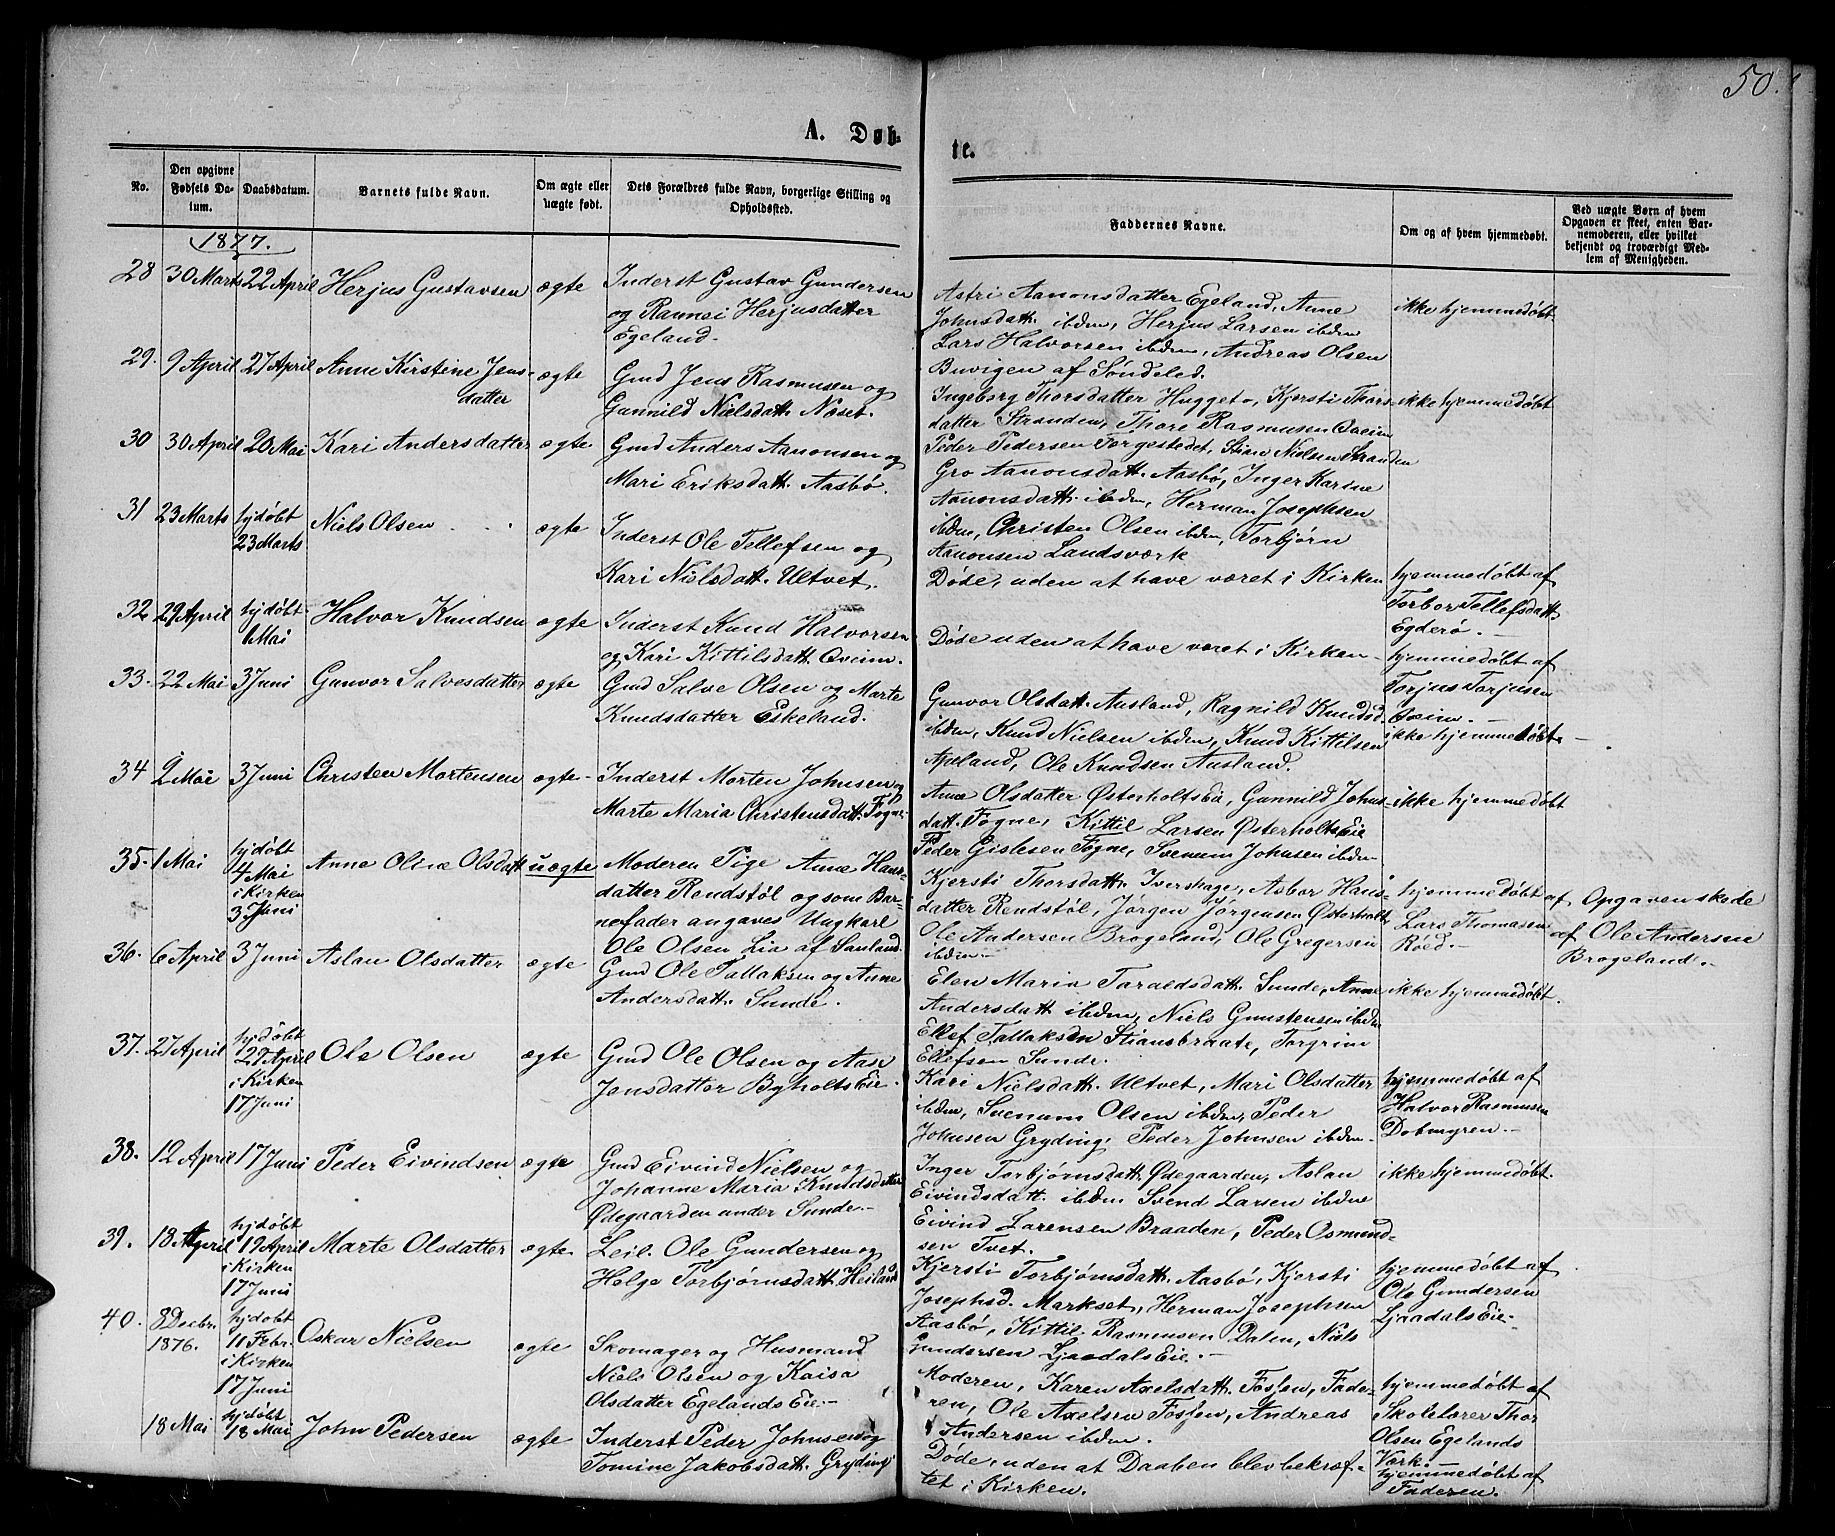 50.
A. Døb-
te.
No.
Den opgivne
Fødsels Da-
tum.
Daabsdatum.
Barnets fulde Navn.
Om ægte eller
uægte født.
Dets Forældres fulde Navn, borgerlige Stilling og
Opholdssted.
Faddernes Navne.
Om og af hvem hjemmedøbt.
Ved uægte Børn af hvem
Opgaven er skeet, enten Bar-
nemoderen, eller hvilket
bekjendt og troværdigt Med-
lem af Menigheden.
1877.
28 30 Marts 22 April Herjus Gustavsen ægte
Inderst Gustav Gundersen
og Rannei Herjusdatter
Egeland.
Astri Aanonsdatter Egeland, Anne
Johnsdatt. ibdm, Herjus Larsen ibdm
Lars Halvorsen ibdm, Andreas Olsen
Buvigen af Söndeled.
ikke hjemmedøbt
29. 9 April 27 April Anne Kirstine Jens-
datter
ægte
Gmd Jens Rasmusen og
Gunnild Nielsdatt. Næset.
Ingeborg Thorsdatter Hugget, Kjersti Thors-
datter Stranden, Thore Rasmusen Qveim
Peder Pedersen Torgestedet, Stian Nielsen Stranden
ikke hjemmedøbt
30 30 April 20 Mai Kari Andersdatter ægte
Gmd Anders Aanonsen og
Mari Eriksdatt. Aasbø.
Gro Aanonsdatt. Aasbø, Inger Karine
Aanonsdatt. ibdm, Herman Josephsen
ibdm, Christen Olsen ibdm, Torbjørn
Aanonsen Landsværk
31 23 Marts hjdøbt
23 Marts
Niels Olsen ægte
Inderst Ole Tellefsen og
Kari Nielsdatt. Ultvet.
Døde, uden at have været i Kirken
hjemmedøbt af
Torbor Tellefsdatt.
Egderø.
32 29 April hjdøbt
6 Mai
Halvor Knudsen ægte
Inderst Knud Halvorsen
og Kari Kittilsdatt. Qveim.
Døde uden at have været i Kirken
hjemmedøbt af
Torjus Torjusen
Qveim.
33. 22 Mai 3 Juni Gunvor Salvesdatter ægte
Gmd Salve Olsen og Marte
Knudsdatter Eskeland.
Gunvor Olsdatt. Ausland, Ragnild Knudsd.
ibdm, Knud Nielsen ibdm, Knud Kittilsen
Apeland, Ole Knudsen Ausland.
ikke hjemmedøbt
34 2 Mai 3 Juni Christen Mortensen ægte
Inderst Morten Johnsen og
Marte Maria Christensdatt. Fogne
Anne Olsdatter ØsterholtsEie, Gunnild Johns-
datt. Fogne, Kittil Larsen ØsterholtsEie
Peder Gislesen Fogne, Svenum Johnsen ibdm
ikke hjemmedøbt
35. 1 Mai hjdøbt
4 Mai
i Kirken
3 Juni
Anne Oline Olsdatt uægte
Moderen Pige Anne Hans-
datter Rendstøl og som Bar-
nefader angaves Ungkarl
Ole Olsen Lia af Sauland
Kjersti Thorsdatt. Ivershage, Asbor Hans-
datter Rendstøl, Jørgen Jörgensen Østerholt
Ole Andersen Brogeland, Ole Gregersen
ibdm
hjemmedøbt af
Lars Thomasen
Røed.
Opgaven skede
af Ole Andersen
Brogeland.
36. 6 April 3 Juni Aslau Olsdatter ægte
Gmd Ole Tallaksen og Anne
Andersdatt. Sunde.
Elen Maria Taraldsdatt. Sunde, Anne
Andersdatt ibdm, Niels Gunstensen ibdm
Ellef Tallaksen Stiansbraate, Torgrim
Ellefsen Sunde.
ikke hjemmedøbt.
37. 27 April hjdöbt
29 April
i Kirken
17 Juni
Ole Olsen ægte
Gmd Ole Olsen og Aase
Jensdatter ByholtsEie.
Kari Nielsdatt. Ultvet, Mari Olsdatter
ibdm, Svenum Olsen ibdm, Peder
Johnsen Gryding, Peder Johnsen ibdm
hjemmedøbt af
Halvor Rasmusen
Dobmyren.
38. 12 April 17 Juni Peder Eivindsen ægte
Gmd Eivind Nielsen og
Johanne Maria Knudsdatter
Ødegaarden under Sunde.
Inger Torbjørnsdatt. Ødegaarden, Aslau
Eivindsdatt. ibdm Svend Larsen ibdm
Eivind Larensen Braaden, Peder Osmund-
sen Tvet.
ikke hjemmedøbt.
39. 18 April hjdøbt
19 April
i Kirken
17 Juni
Marte Olsdatter ægte
Leil. Ole Gundersen og
Helge Torbjørnsdatt. Heiland
Kjersti Torbjørnsdatt. Aasbø, Kjersti
Josephsd. Markset, Herman Josephsen
Aasbø, Kittil Rasmusen Dalen, Niels
Gundersen LjaadalsEie.
hjemmedøbt af
Ole Gundersen
LjaadalsEie.
40. 8 Decbr.
1876.
hjdobt
11 Febr
i Kirken
17 Juni
Oskar Nielsen ægte
Skomager og Husmand
Niels Olsen og Kaisa
Olsdatter EgelandsEie.
Moderen, Karen Axelsdatt. Fossen, Fade-
ren, Ole Axelsen Fossen, Andreas
Andersen ibdm.
hjemmedøbt af
Skolelærer Thor
Olsen Egelands
Værk.
18 Mai hjdöbt
18 Mai
John Pedersen ægte
Inderst Peder Johnsen og
Tomine Jakobsdatt. Gryding
Døde, uden at Daaben blev bekræf-
tet i Kirken.
hjemmedøbt af
Faderen.